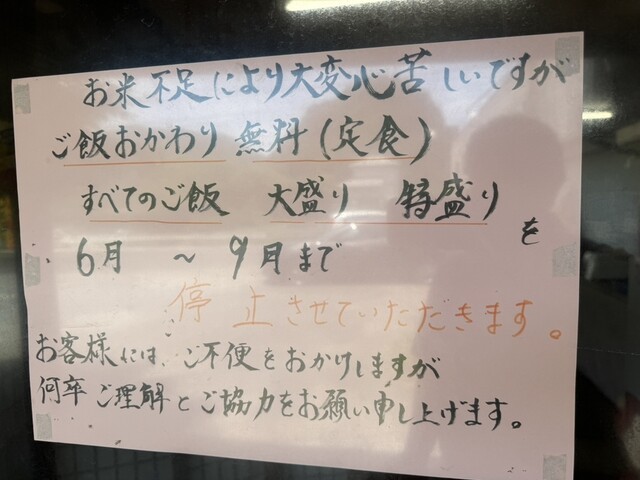 お米不足により大変心苦しいですが
ご飯おかわり無料(定食)
すべてのご飯 大盛り 特盛り を
6月 ~ 9月まで
停止させていただきます。
お客様には、ご不便をおかけしますが
何卒ご理解とご協力をお願い申し上げます。